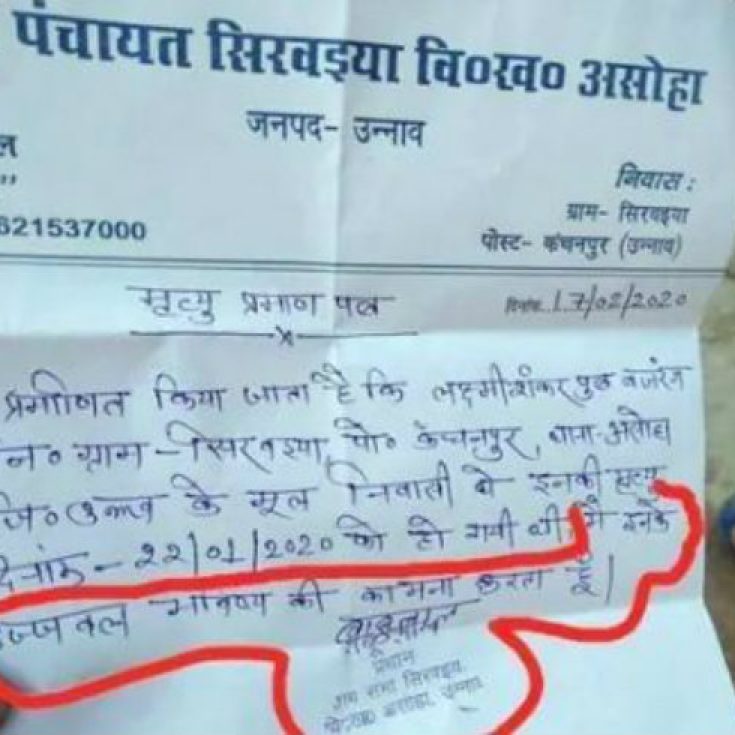 पंचायत सिरवइया वि०ख० असोहा
जनपद- उन्नाव
ल
”
निवास :
621537000
ग्राम- सिरवइया
पोस्ट- कंचनपुर (उन्नाव)
मृत्यु प्रमाण पत्र
दिनांक 17/02/2020
प्रमाणित किया जाता है कि लक्ष्मीशंकर पुत्र बजरंग
नि० ग्राम - सिरवइया, पो० कंचनपुर, थाना-असोहा
जि० उन्नाव के मूल निवासी थे इनकी मृत्यु
दिनांक - 22/01/2020 को हो गयी थी। मै इनके
उज्जवल भविष्य की कामना करता हूँ।
प्रधान
ग्राम सभा सिरवइया
वि०ख० असोहा, उन्नाव